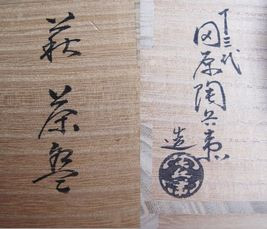 萩茶碗
十三代
田原陶兵衛
造